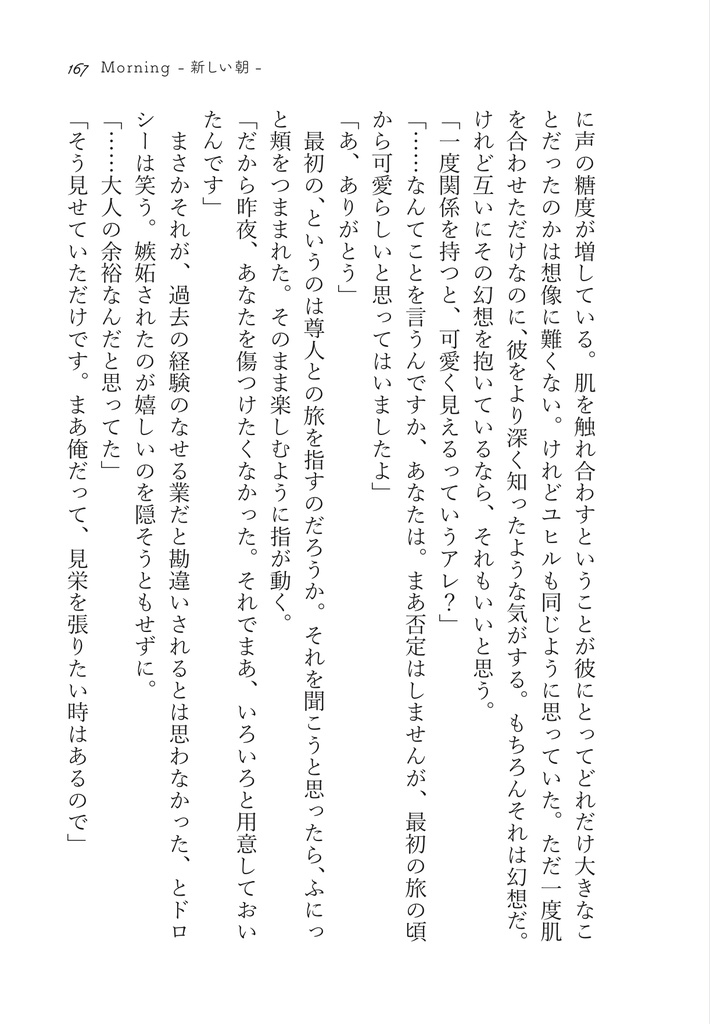 167 Morning - 新しい朝 -
に声の糖度が増している。肌を触れ合わすということが彼にとってどれだけ大きなこ
とだったのかは想像に難くない。けれどユヒルも同じように思っていた。ただ一度肌
を合わせただけなのに、彼をより深く知ったような気がする。もちろんそれは幻想だ。
けれど互いにその幻想を抱いているなら、それもいいと思う。
「一度関係を持つと、可愛く見えるっていうアレ？」
「……なんてことを言うんですか、あなたは。まあ否定はしませんが、最初の旅の頃
から可愛らしいと思ってはいましたよ」
「あ、ありがとう」
最初の、というのは尊人との旅を指すのだろうか。それを聞こうと思ったら、ふにっ
と頬をつままれた。そのまま楽しむように指が動く。
「だから昨夜、あなたを傷つけたくなかった。それでまあ、いろいろと用意しておい
たんです」
まさかそれが、過去の経験のなせる業だと勘違いされるとは思わなかった、とドロ
シーは笑う。嫉妬されたのが嬉しいのを隠そうともせずに。
「……大人の余裕なんだと思ってた」
「そう見せていただけです。まあ俺だって、見栄を張りたい時はあるので」